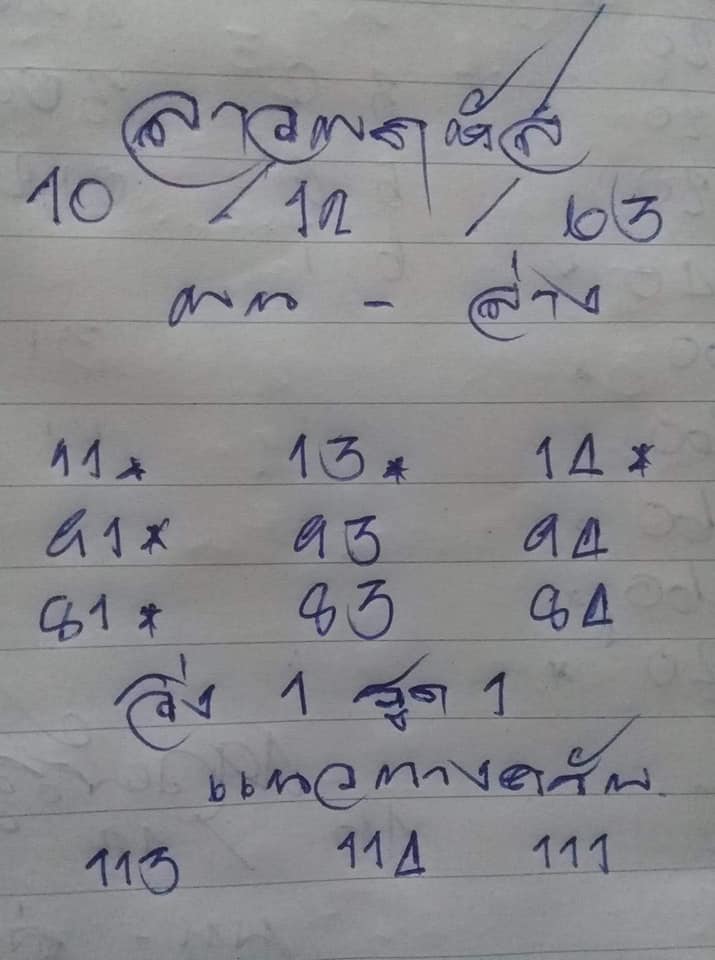 ลาวพฤหัส
10 / 12 / 63
บน - ล่าง
11* 13* 14*
91* 93 94
81* 83 84
วิ่ง 1 รูด 1
แนวทางครับ
113 114 111